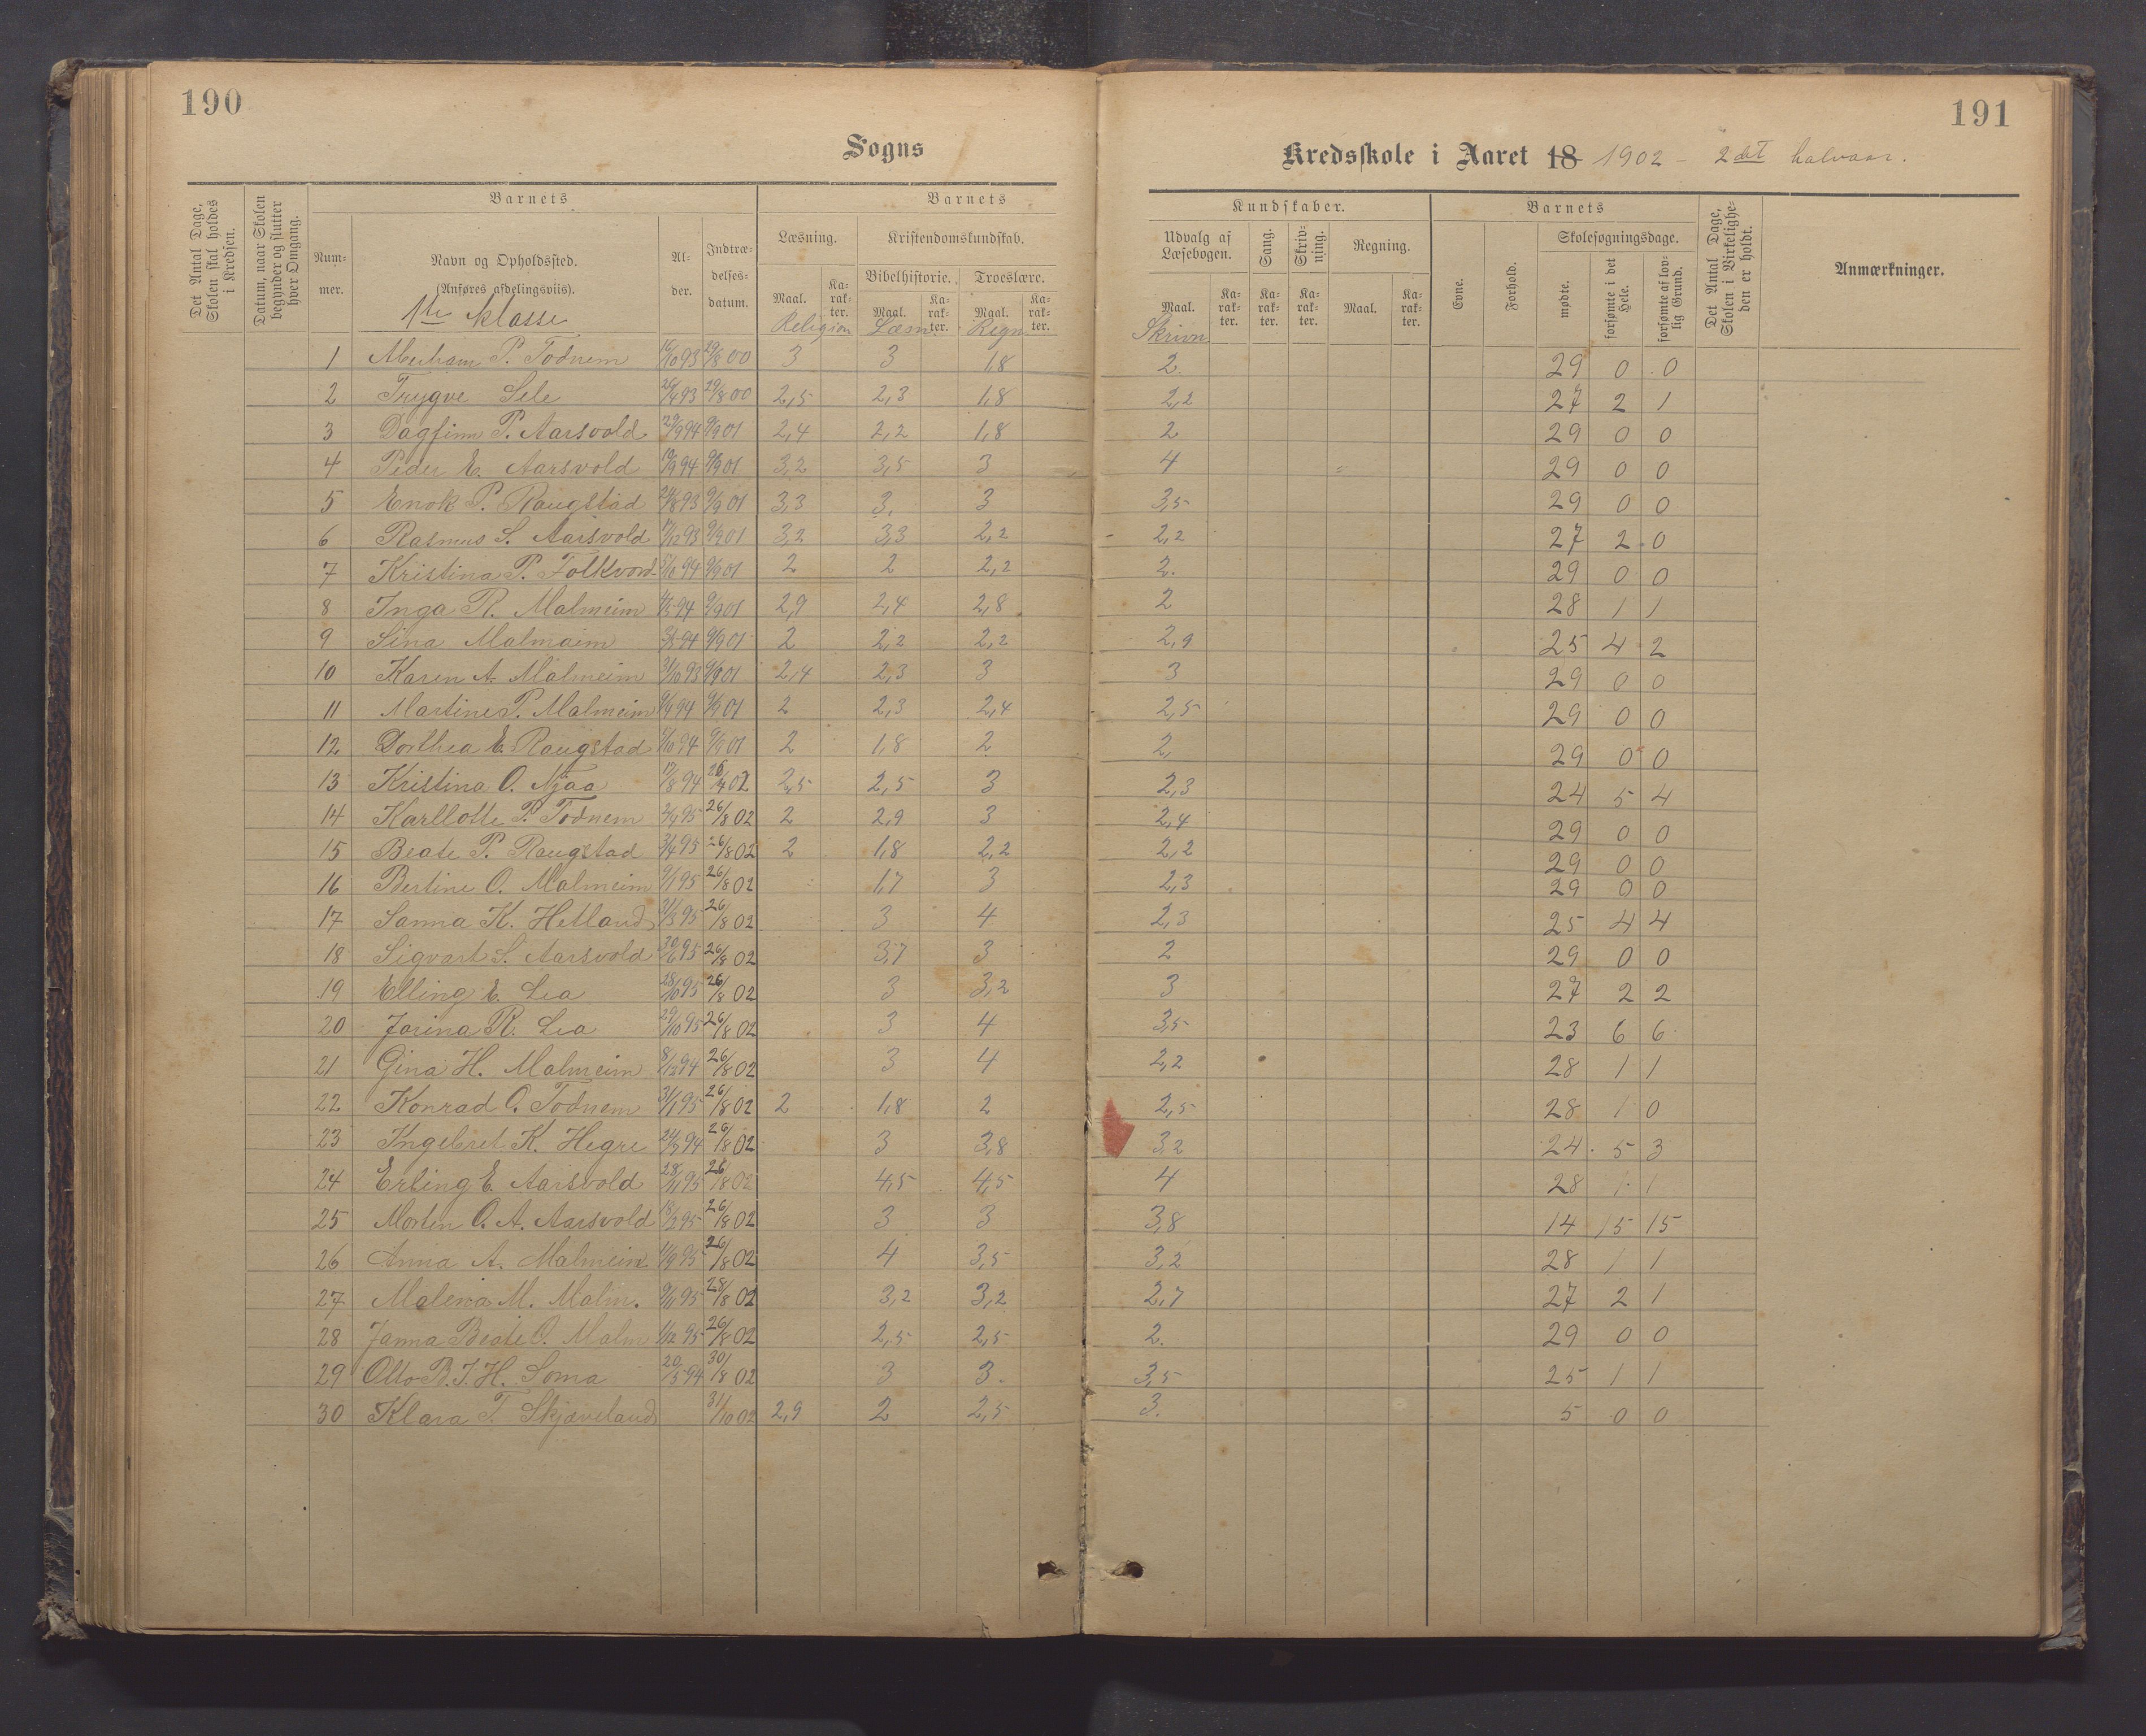 190
191
Sogns
Kredsskole i Aaret 18 1902 - 2det halvaar.
Det Antal Dage, Skolen skal holdes i Kredsen.
Datum, naar Skolen begynder og slutter hver Omgang.
Barnets
Barnets
Kundskaber.
Barnets
Det Antal Dage, Skolen i Virkeligheden er holdt.
Anmærkninger.
Nummer.
Navn og Opholdssted.
(Anføres afdelingsviis).
Alder.
Indtrædelsesdatum.
Læsning.
Kristendomskundskab.
Udvalg af Læsebogen.
Sang.
Skrivning.
Regning.
Evne.
Forhold.
Skolesøgningsdage.
Bibelhistorie.
Troeslære.
mødte.
forsømte i det Hele.
forsømte af lovlig Grund.
Maal. Karakter. Maal. Karakter. Maal. Karakter. Maal. Karakter. Karakter. Karakter. Maal. Karakter.
1ste klasse Religion Læsn Regn Skrivn
1 Abraham P. Todnem 16/10 93 29/8 00 3 3 1,8 2. 29 0 0
2 Trygve Sele 26/4 93 29/8 00 2,5 2,3 1,8 2,2 27 2 1
3 Dagfinn P. Aarsvold 29/9 94 9/9 01 2,4 2,2 1,8 2 29 0 0
4 Peder E. Aarsvold 19/9 94 9/9 01 3,2 3,5 3 4 29 0 0
5 Enok P. Raugstad 24/8 93 9/9 01 3,3 3. 3 3,5 29 0 0
6 Rasmus S. Aarsvold 17/12 93 9/9 01 3,2 3,3 2,2 2,2 27 2 0
7 Kristina P. Folkvord 5/10 94 9/9 01 2 2 2,2 2. 29 0 0
8 Inga R. Malmeim 94 9/9 01 2,9 2,4 2,8 2 28 1 1
9 Sina Malmaim 94 9/9 01 2 2,2 2,2 2,9 25 4 2
10 Karen A. Malmeim 31/10 93 9/9 01 2,4 2,3 3 3 29 0 0
11 Martine P. Malmeim 94 9/9 01 2 2,3 2,4 2,5 29 0 0
12 Dorthea E. Raugstad 94 9/9 01 2 1,8 2 2, 29 0 0
13 Kristina O. Njaa 17/8 94 02 2,5 2,5 3 2,3 24 5 4
14 Karllotte P. Todnem 95 26/8 02 2 2,9 3 2,4 29 0 0
15 Beate P. Raugstad 3/4 95 26/8 02 2 1,8 2,2 2,2 29 0 0
16 Bertine O. Malmeim 9/1 95 26/8 02 1,7 3 2,3 29 0 0
17 Sanna K. Hetland 31/3 95 26/8 02 3 4 2,3 25 4 4
18 Sigvart S. Aarsvold 95 26/8 02 3,7 3 2 29 0 0
19 Elling E. Lea 28/10 95 26/8 02 3 3,2 3 27 2 2
20 Jorina R. Lea 29/10 95 26/8 02 3 4 3,5 23 6 6
21 Gina H. Malmeim 8/12 94 26/8 02 3 4 2,2 28 1 1
22 Konrad O. Todnem 31/1 95 26/8 02 2 1,8 2 2,5 28 1 0
23 Ingebret K. Hegre 94 26/8 02 3 3,8 3,2 24 5 3
24 Erling E. Aarsvold 28/11 95 26/8 02 4,5 4,5 4 28 1 1
25 Morten O. A. Aarsvold 18/2 95 26/8 02 3 3 3,8 14 15 15
26 Anna A. Malmeim 1/9 95 26/8 02 4 3,5 3,2 28 1 1
27 Malena M. Malm. 9/11 95 28/8 02 3,2 3,2 2,7 27 2 1
28 Janna Beate O. Malm 1/12 95 26/8 02 2,5 2,5 2. 29 0 0
29 Otto B. J. H. Soma 20/5 94 30/8 02 3 3. 3,5 25 1 1
30 Klara T. Skjæveland 31/10 02 2,9 2 2,5 3. 5 0 0